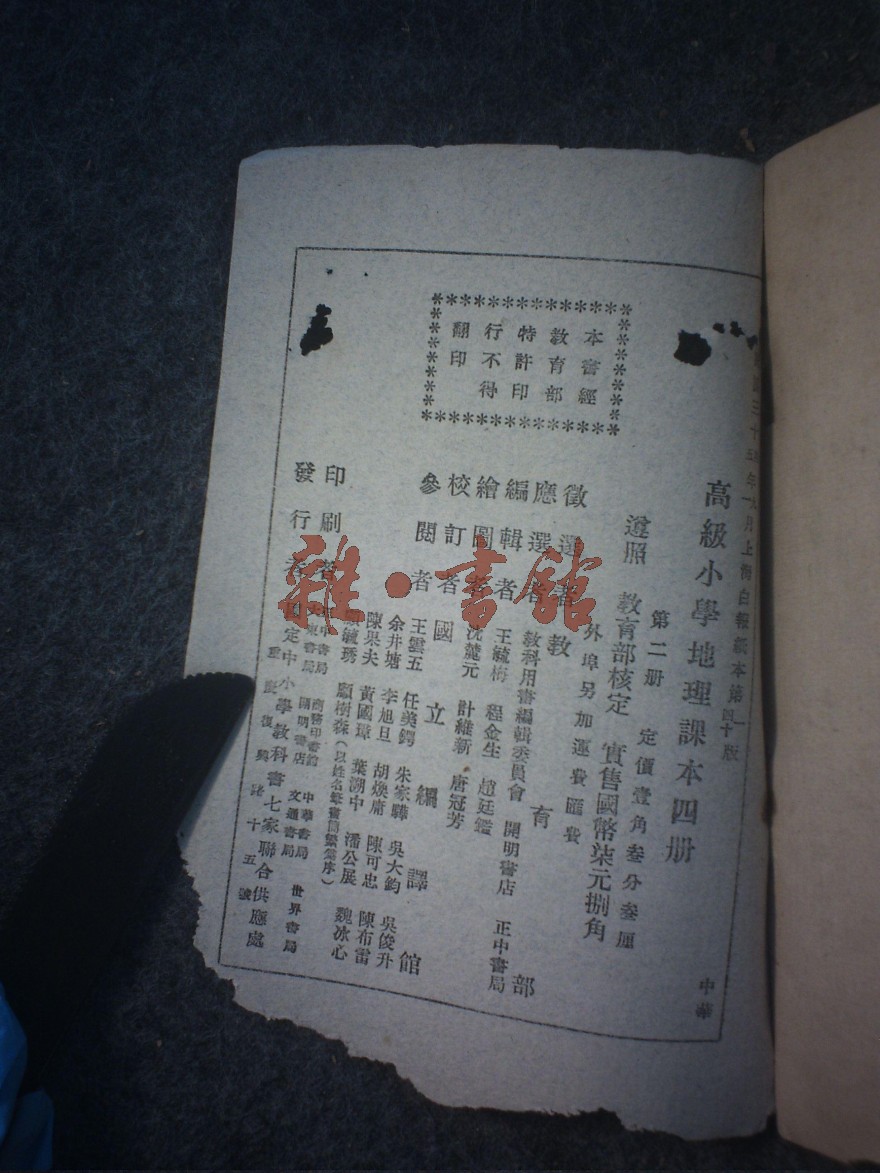 三十五年一月上海白報紙本第一四十版
高級小學地理課本四册
第二册 定價壹角叁分叁厘
遵照教育部核定 實售國幣柒元捌角
外埠另加運費匯費
中華
本書經
教育部
特許印
行不得
翻印
徵選者 教育部
應選者 教科用書編輯委員會 開明書店 正中書局
編輯者 王毓梅 程金生 趙廷鑑
繪圖者 沈麓元 計維新 唐冠芳
校訂者 國立編譯館
參閱者 王雲五 任美鍔 朱家驊 吳大鈞 吳俊升
余井塘 李旭旦 胡煥庸 陳可忠 陳布雷
陳果夫 黃國璋 葉溯中 潘公展 魏冰心
顧毓琇 顧樹森(以姓名筆畫簡繁爲序)
印刷者 正中書局 商務印書館 中華書局 世界書局
大東書局 開明書店 文通書局
發行者 國定中小學教科書七家聯合供應處
重慶復興路十五號
雜·書館